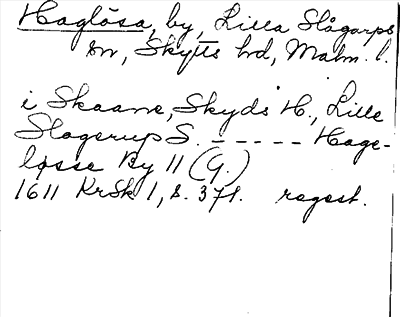 Haglösa, by, Lilla Slågarps
sn, Skytts hd, Malm. l.
i Skaane, Skyds H., Lille
Slagerup S. - - - - - Hage-
løsse By 11 (G.)
1611 KrSk 1, s. 371. regest.